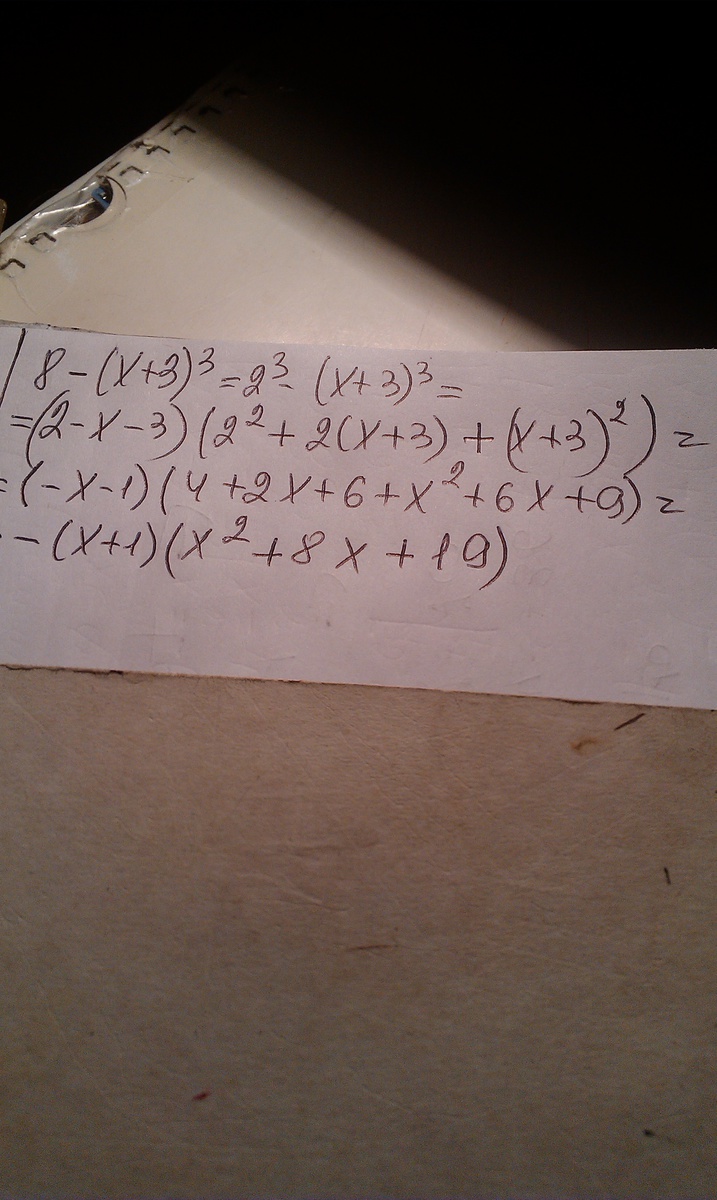 8-(x+3)³=2³-(x+3)³=
=(2-x-3)(2²+2(x+3)+(x+3)²)=
=(-x-1)(4+2x+6+x²+6x+9)=
-(x+1)(x²+8x+19)